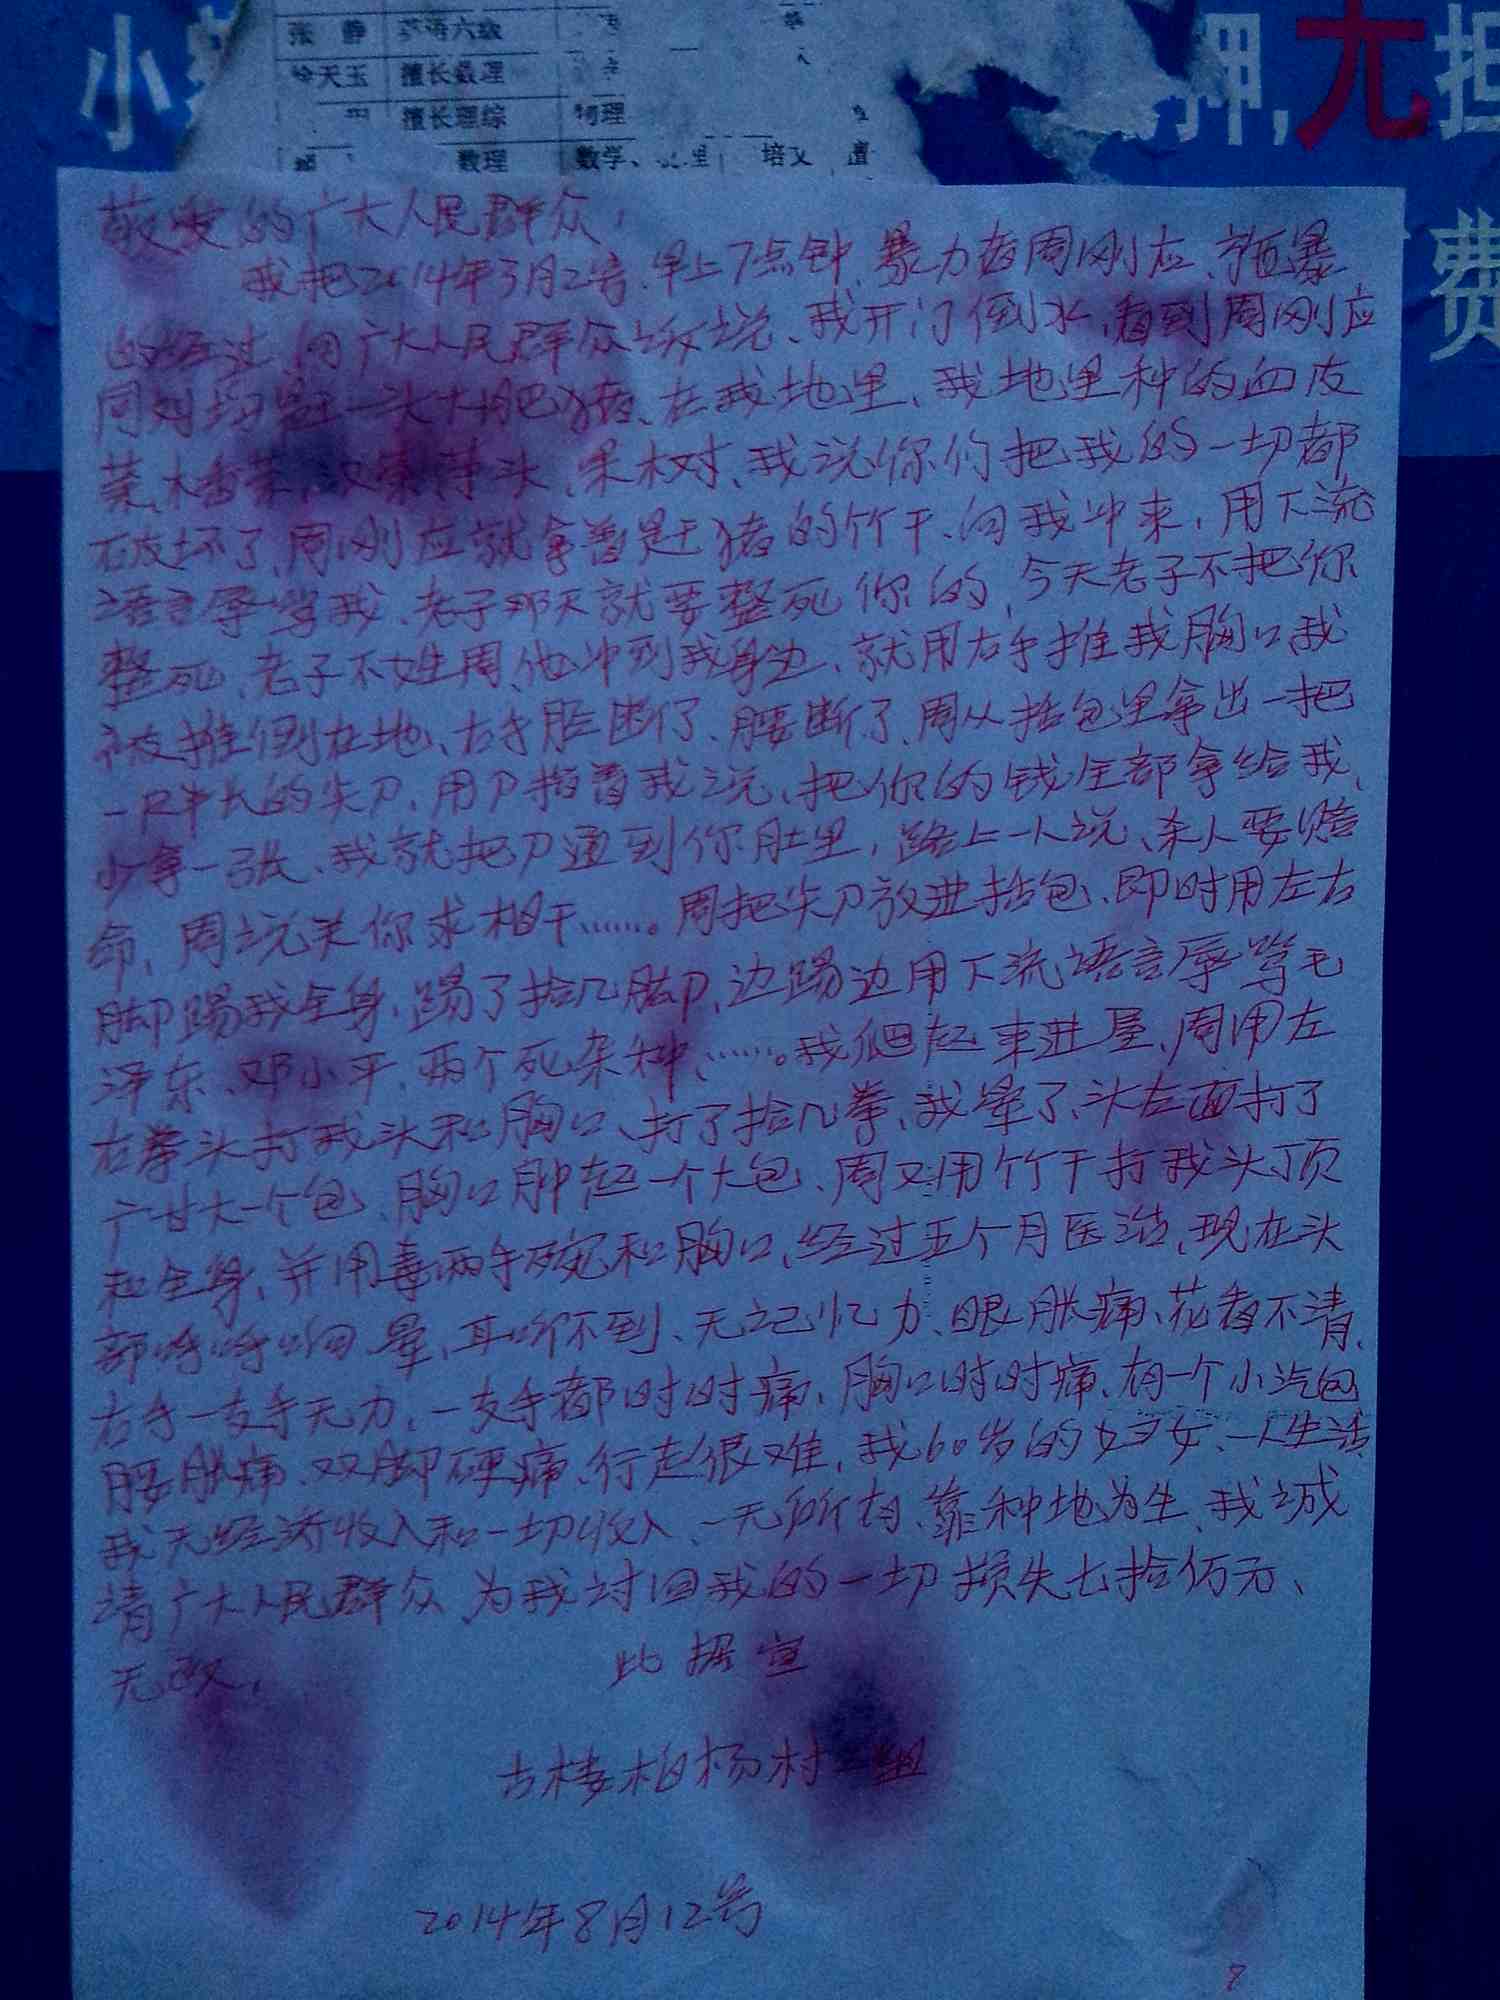 小
押,无担
费
张 静 英语六级
天玉 擅长数理
擅长理综 物理
数理 数学、 理 培 
敬爱的广大人民群众,
我把2014年3月2号.早上7点钟,暴力者周刚应、施暴
的经过,向广大人民群众诉说、我开门倒水,看到周刚应
同 一头大肥猪、在我地里、我地里种的血皮
菜,木香菜, 芋头、果树、我说你们把我的一切都
破坏了,周刚应就拿着赶猪的竹干、向我冲来,用下流
语言辱骂我、老子那天就要整死你的,今天老子不把你
整死、老子不姓周、他冲到我身边、就用右手推我胸口我
被推倒在地、右手 断了、腰断了、周从挎包里拿出一把
一尺半长的尖刀、用刀指着我说、把你的钱全部拿给我、
少拿一张、我就把刀通到你肚里,路上一人说、杀人要赔
命,周说关你求相干……。周把尖刀放进挎包、即时用左右
脚踢我全身,踢了拾几脚,边踢边用下流语言辱骂毛
泽东、邓小平,两个死杂种、……。我爬起来进屋、周用左
右拳头打我头和胸口、打了拾几拳、我晕了、头左面打了
广甘大一个包、胸口肿起一个大包、周又用竹干打我头顶
和全身,并用毒 两手 和胸口、经过五个月医治、现在头
部 晕,耳听不到、无记忆力、眼胀痛、花看不清、
右手一支手无力、一支手都时时痛、胸口时时痛、有一个小汽包
腰胀痛、双脚硬痛、行走很难,我60岁的妇女、一人生活
我无经济收入和一切收入、一无所有、靠种地为生、我诚
请广大人民群众、为我讨回我的一切损失七拾万元、
无改,
此据宣
古楼柏杨村
2014年8月12号